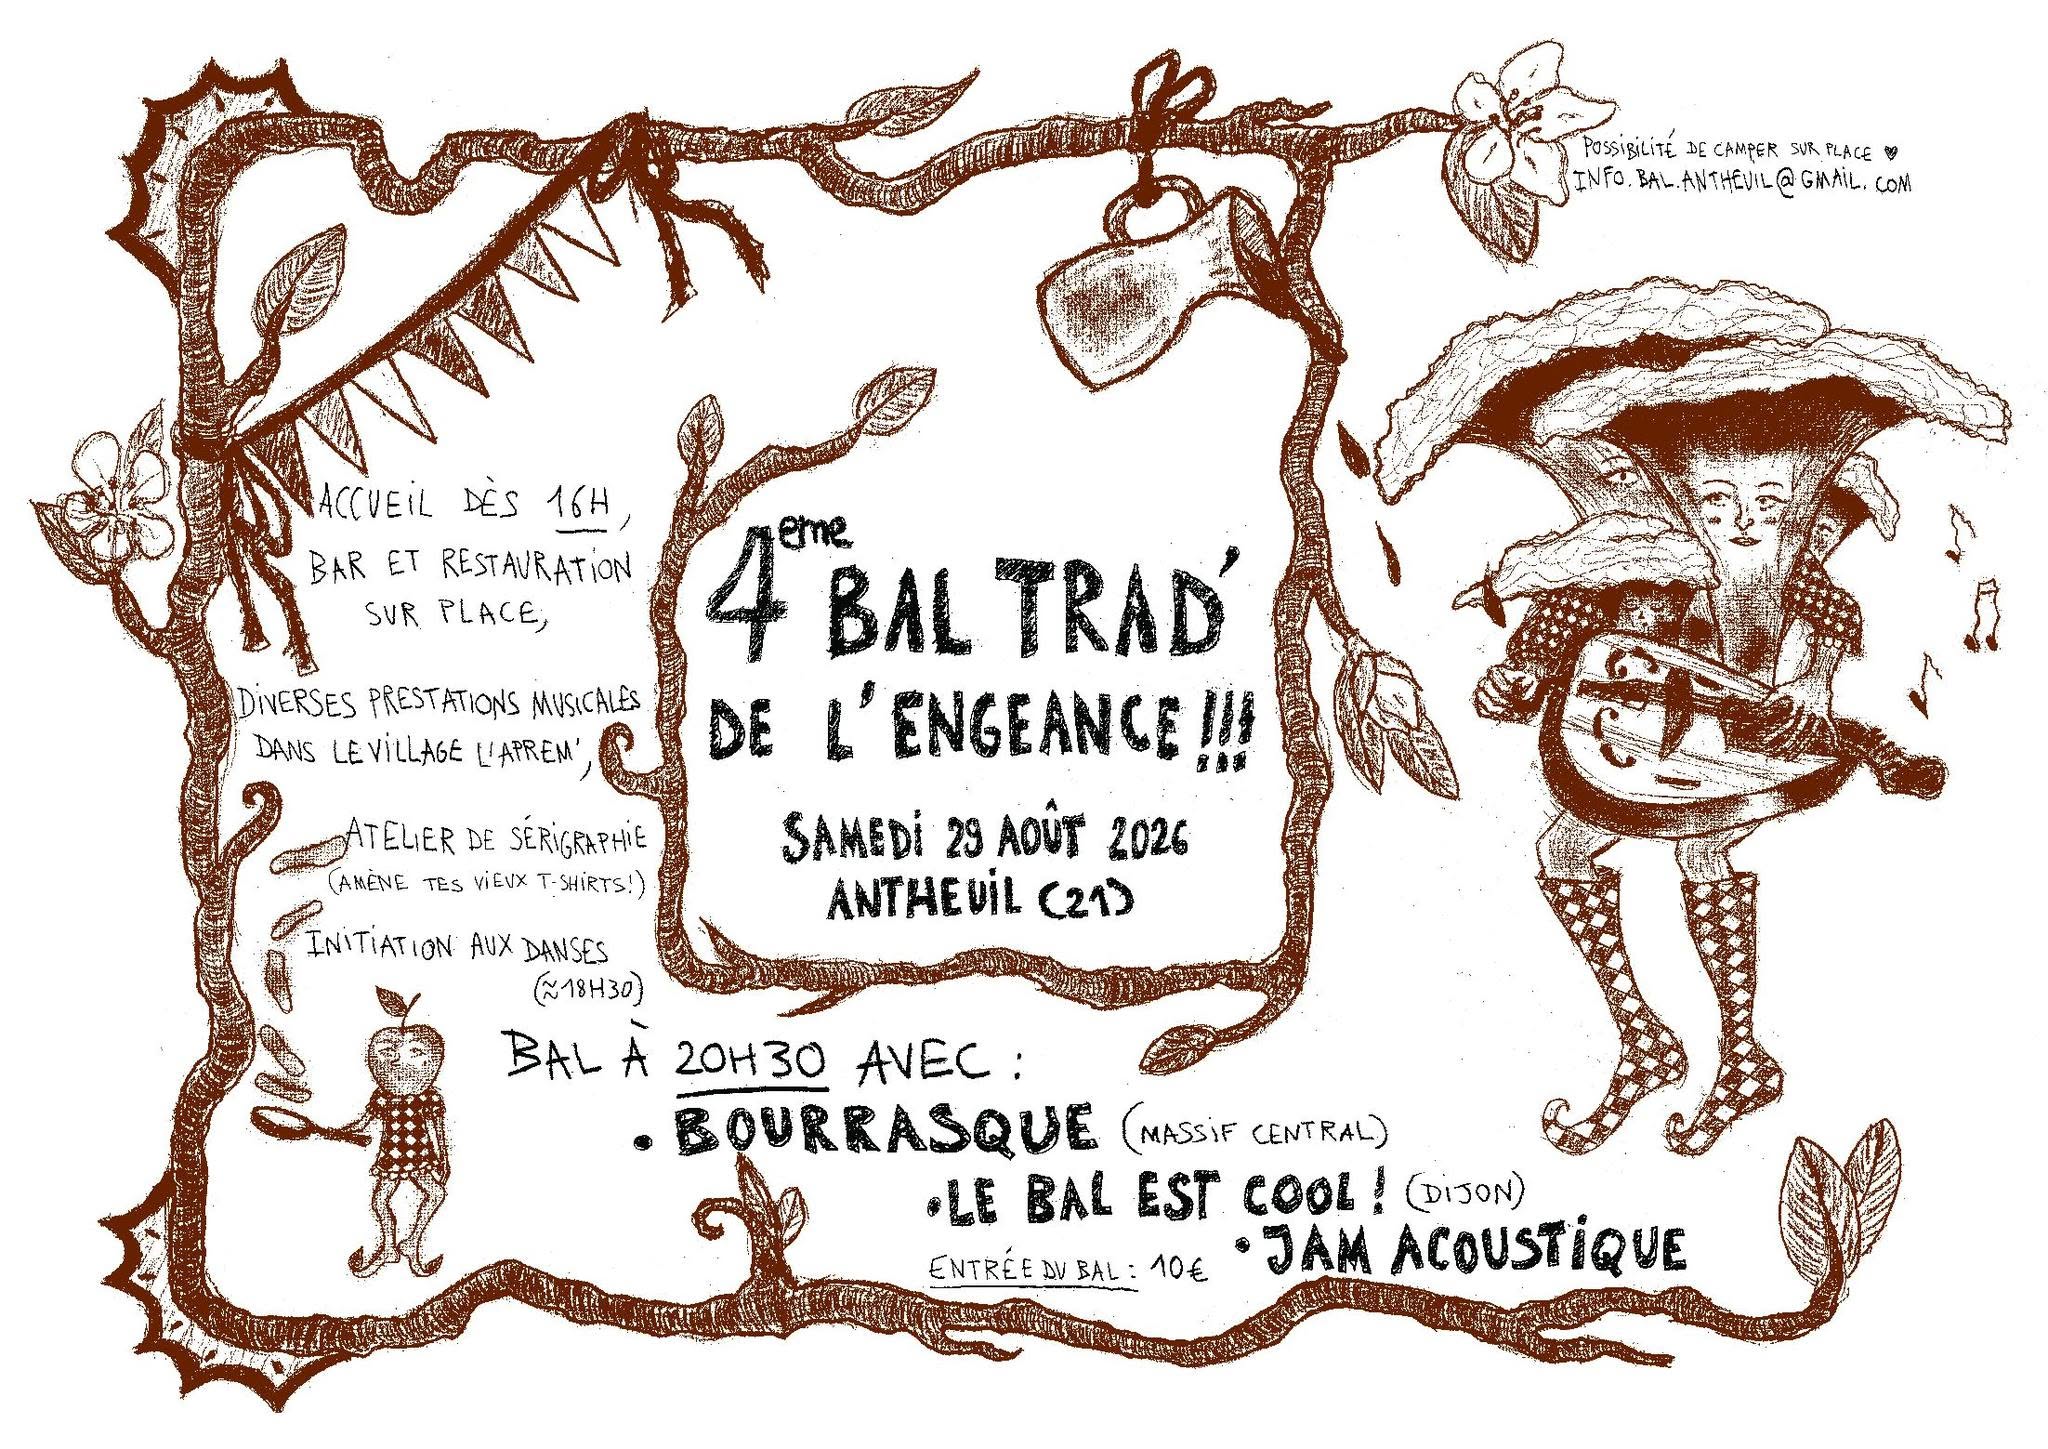 POSSIBILITÉ DE CAMPER SUR PLACE ♥
INFO.BAL.ANTHEUIL@GMAIL.COM
ACCUEIL DÈS 16H,
BAR ET RESTAURATION
SUR PLACE,
DIVERSES PRESTATIONS MUSICALES
DANS LE VILLAGE L'APREM',
ATELIER DE SÉRIGRAPHIE
(AMÈNE TES VIEUX T-SHIRTS!)
INITIATION AUX DANSES
(≈18H30)
4eme BAL TRAD'
DE L'ENGEANCE!!!
SAMEDI 29 AOÛT 2026
ANTHEUIL (21)
BAL À 20H30 AVEC :
• BOURRASQUE (MASSIF CENTRAL)
• LE BAL EST COOL! (DIJON)
• JAM ACOUSTIQUE
ENTRÉE DU BAL : 10€